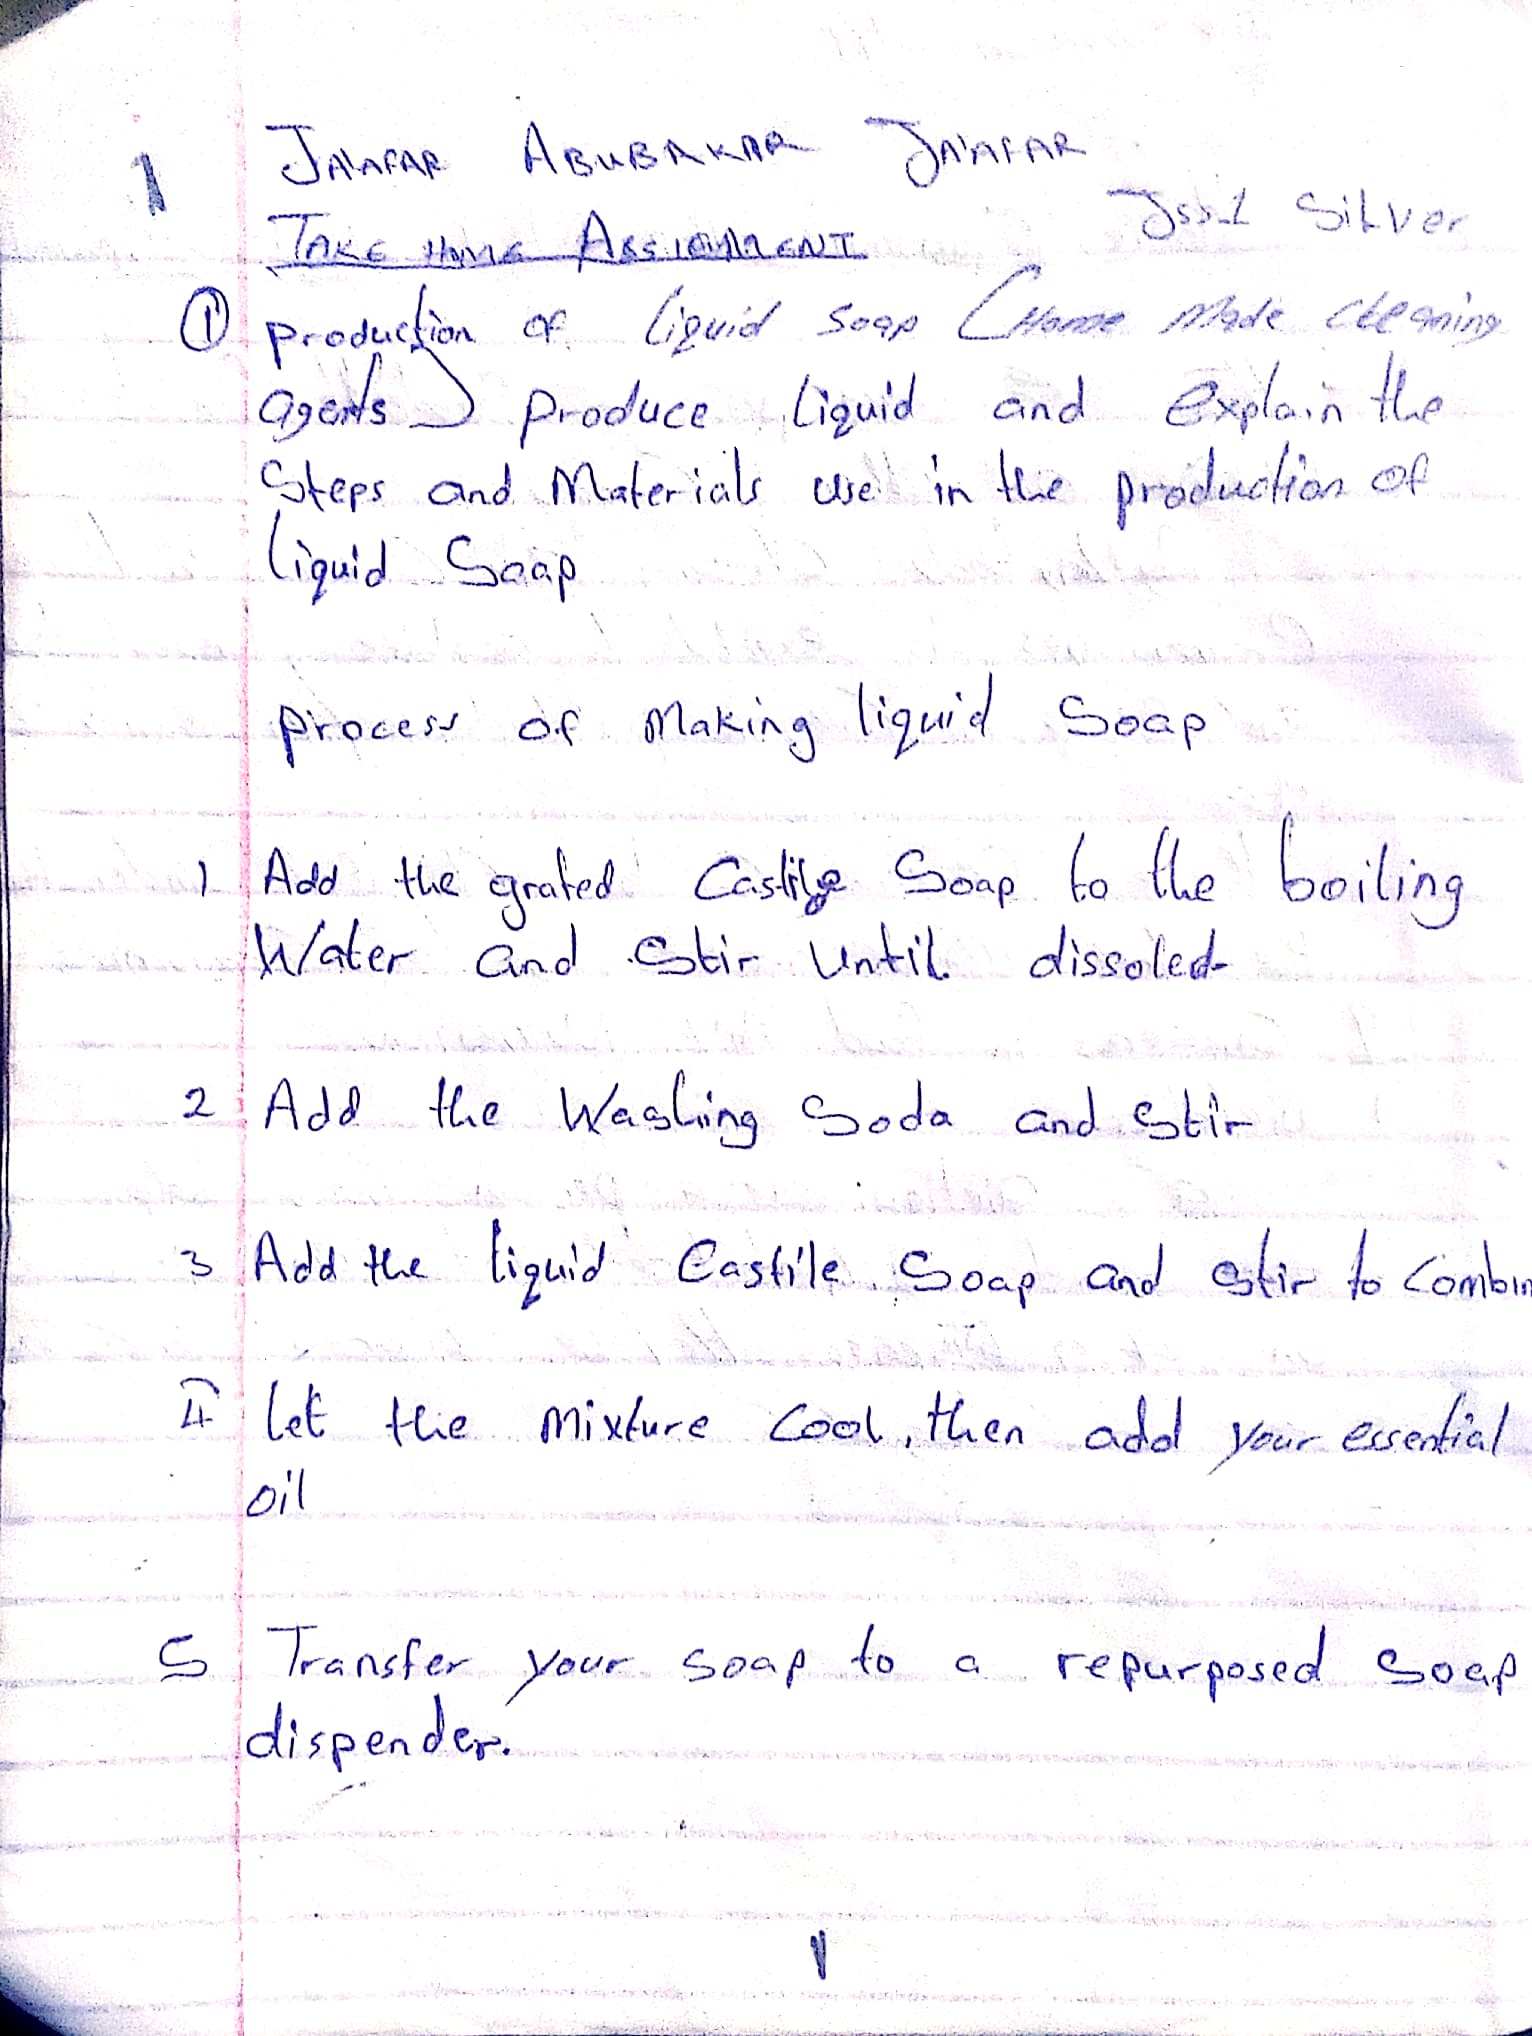 1
JA'AFAR ABUBAKAR JA'AFAR
Jss1 Silver
TAKE HOME ASSIGNMENT
① production of liquid soap (Home Made cleaning
agents) produce liquid and explain the
Steps and Materials use in the production of
liquid Soap
process of Making liquid Soap
1 Add the grated Castile Soap to the boiling
Water and Stir Until dissoled
2 Add the Washing Soda and Stir
3 Add the liquid Castile Soap and Stir to Combin
4 let the Mixture Cool, then add your essential
oil
5 Transfer your soap to a repurposed Soap
dispender.
1